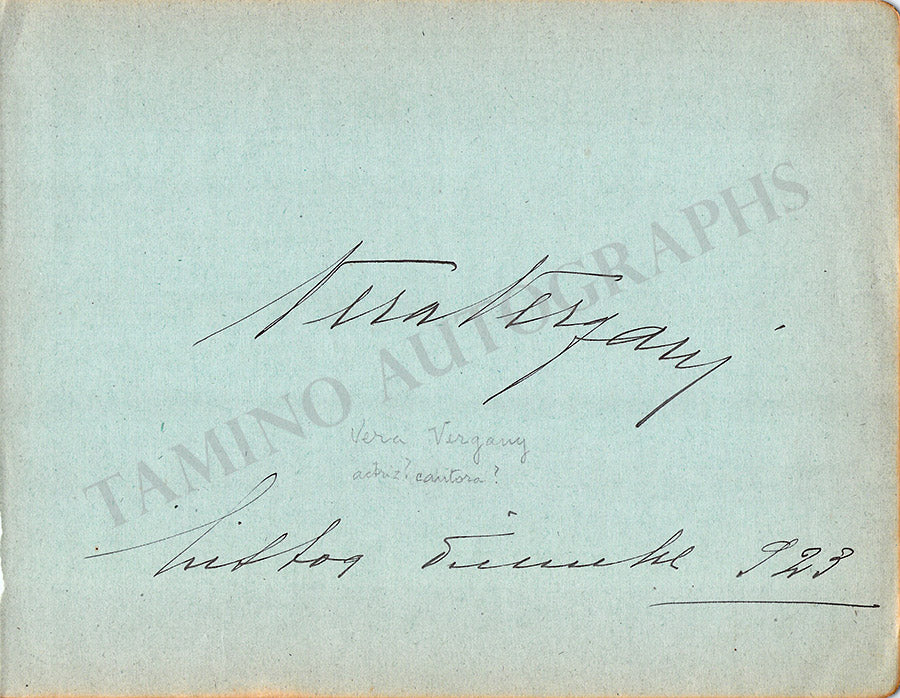 Vera Vergani
TAMINO AUTOGRAPHS
Vera Vergany
actriz? cantora?
923